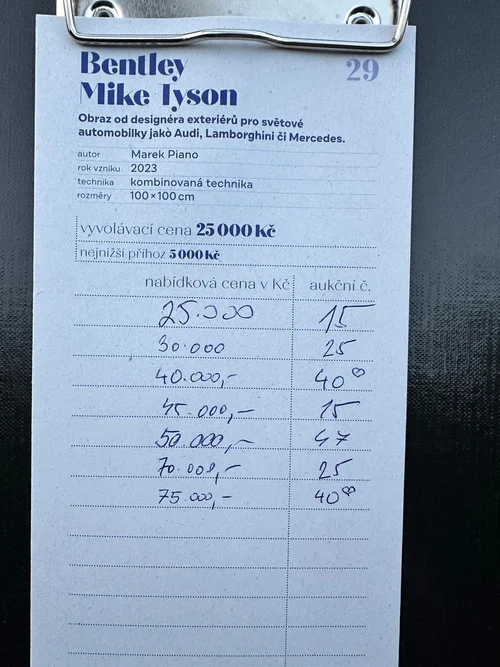 Bentley 29
Mike Tyson
Obraz od designéra exteriérů pro světové
automobilky jako Audi, Lamborghini či Mercedes.
autor Marek Piano
rok vzniku 2023
technika kombinovaná technika
rozměry 100×100 cm
vyvolávací cena 25 000 Kč
nejnižší příhoz 5 000 Kč
nabídková cena v Kč aukční č.
25.000 15
30.000 25
40.000,- 40
45.000,- 15
50.000,- 47
70.000,- 25
75.000,- 40